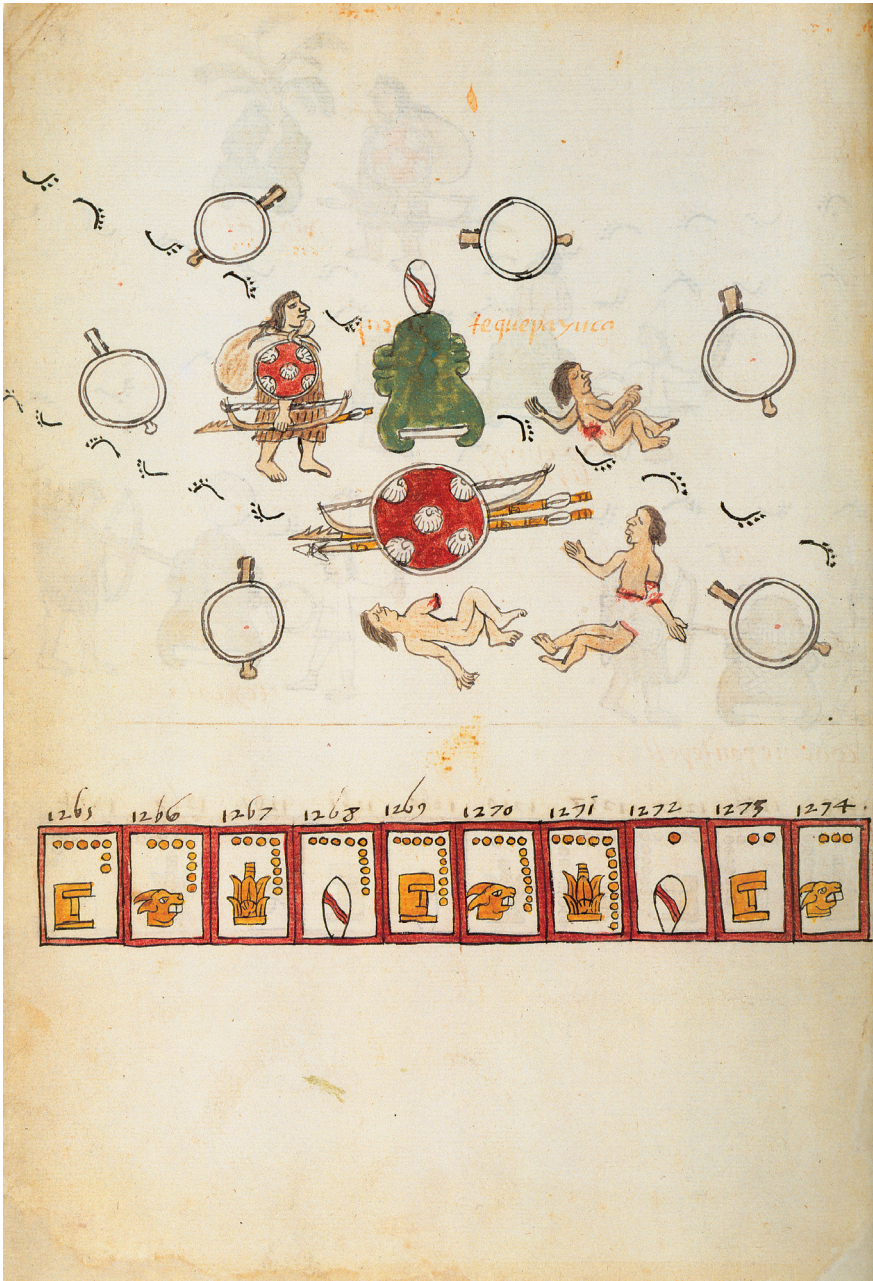 tequepayuca
1265 1266 1267 1268 1269 1270 1271 1272 1273 1274.